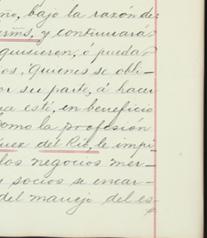 no, bajo la razón de
erms, y continuará
quisieren, ó pueda
os. Quienes se obli-
or su parte, á hacer
na esté, en beneficio
como la profesión
uez del Rio, le impi
los negocios mer-
y socios se encar-
del manejo del es-